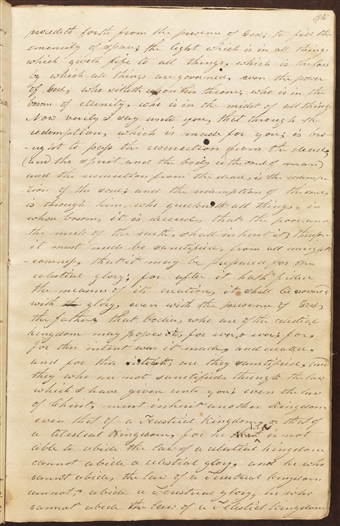 proceedeth forth from the presence of God; to fill the
emensity of space; the light which is in all things:
which giveth life to all things, which is the law
by which all things are governed, even the power
of God, who sitteth upon his throne; who is in the
bosom of eternity, who is in the midst of all things.
Now verily I say unto you, that through the
redemption, which is made for you; is bro-
ught to pass the resurrection from the dead,
(and the spirit and the body is the soul of man)
and the resurrection from the dead, is the redemp-
tion of the soul; and the redemption of the soul
is through him, who quickeneth all things, in
whose bosom, it is decreed, that the poor and
the meek of the earth, shall inherit it; therefore
it must needs be sanctified, from all unright-
eousness, that it may be prepared for the
celestial glory; for after it hath filled
the measure of its creation, it shall be crowned
with glory, even with the presence of God,
the father; that bodies, who are of the celestial
kingdom may possess it, for ever and ever; for,
for this intent was it made, and created
and for this intent, are they sanctified, And
they who are not sanctified through the law
which I have given unto you: even the law
of Christ, must inherit another kingdom
even that of a Terestrial Kingdom, or that of
a telestial kingdom, for he who is not
able to abide the law of a celestial kingdom
cannot abide a celestial glory, and he who
cannot abide, the law of a Terestrial kingdom
cannot abide a Terestrial glory, he who
cannot abide the law of a telestial kingdom